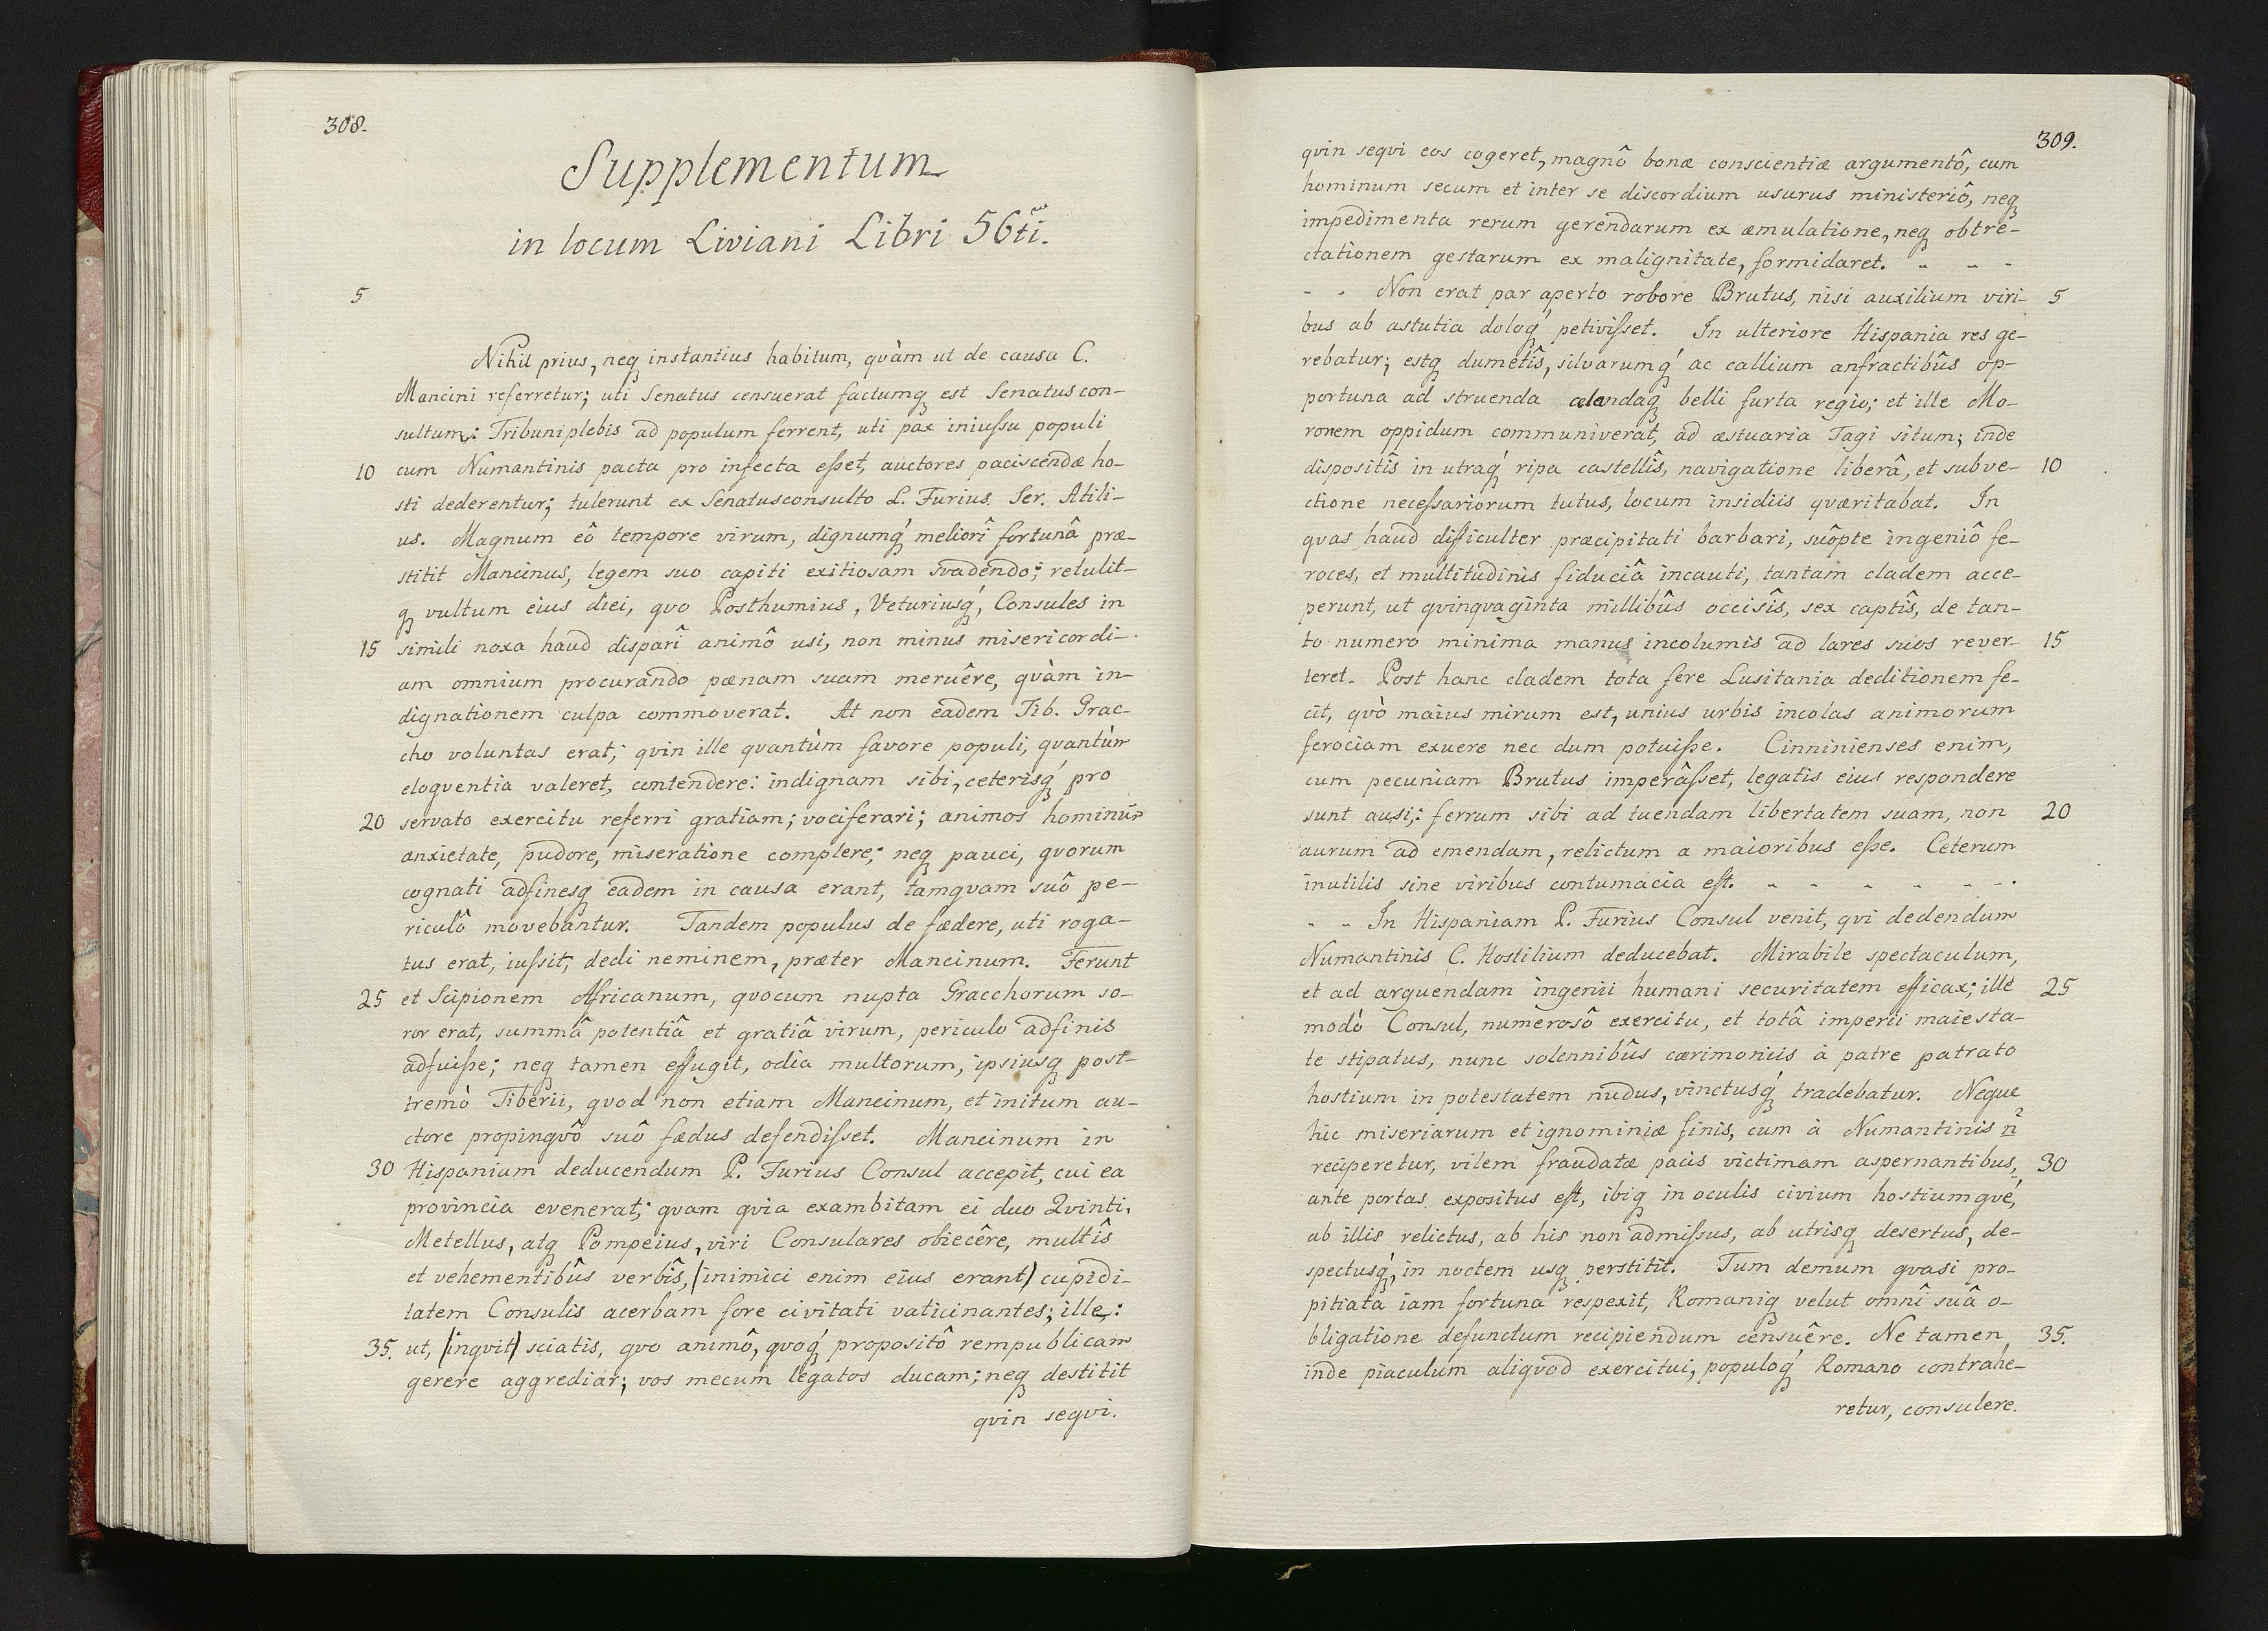 308.
Supplementum
in locum Liviani Libri 56ti.
5
Nihil prius, neq instantius habitum, qvàm ut de causa C.
Mancini referretur; uti Senatus censuerat factumq est Senatus con-
sultum: Tribuni plebis ad populum ferrent, uti pax iniussu populi
10 cum Numantinis pacta pro infecta esset, auctores paciscendæ ho-
sti dederentur; tulerunt ex Senatusconsulto L. Furius. Ser. Atili-
us. Magnum eô tempore virum, dignumq́ meliorî fortunâ præ-
stitit Mancinus, legem suo capiti exitiosam svadendo; retulit-
q vultum eius diei, qvo Posthumius, Veturiusq́, Consules in
15 simili noxa haud disparî animô usi, non minus misericordi-
am omnium procurando pœnam suam meruêre, qvàm in-
dignationem culpa commoverat. At non eadem Tib. Grac-
cho voluntas erat; qvin ille qvantùm favore populi, qvantùm
eloqventia valeret, contendere: indignam sibi, ceterisq́ pro
20 servato exercitu referri gratiam; vociferari; animos hominū
anxietate, pudore, miseratione complere; neq pauci, qvorum
cognati adfinesq eadem in causa erant, tamqvam suô pe-
riculô movebantur. Tandem populus de fœdere, uti roga-
tus erat, iussit, dedi neminem, præter Mancinum. Ferunt
25 et Scipionem Africanum, qvocum nupta Gracchorum so-
ror erat, summâ potentiâ et gratiâ virum, periculo adfinis
adfuisse; neq tamen effugit, odia multorum, ipsiusq post-
tremò Tiberii, qvod non etiam Mancinum, et initum au-
ctore propinqvô suô fœdus defendisset. Mancinum in
30 Hispaniam deducendum P. Furius Consul accepit, cui ea
provincia evenerat; qvam qvia exambitam ei duo Qvinti,
Metellus, atq Pompeius, viri Consulares obiecêre, multîs
et vehementibûs verbîs, (inimici enim eius erant) cupidi-
tatem Consulis acerbam fore civitati vaticinantes; ille:
35. ut, (inqvit) sciatis, qvo animô, qvoq́ propositô rempublicam
gerere aggrediar; vos mecum legatos ducam; neq destitit
qvin seqvi.
309.
qvin seqvi eos cogeret, magnô bonæ conscientiæ argumentô, cum
hominum secum et inter se discordium usurus ministeriô, neq
impedimenta rerum gerendarum ex æmulatione, neq obtre-
ctationem gestarum ex malignitate, formidaret. - - -
- - Non erat par aperto robore Brutus, nisi auxilium viri- 5
bus ab astutia doloq́ petivisset. In ulteriore Hispania res ge-
rebatur; estq dumetîs, silvarumq́ ac callium anfractibûs op-
portuna ad struenda celandaq belli furta regio; et ille Mo-
ronem oppidum communiverat, ad æstuaria Tagi situm; inde
dispositîs in utraq́ ripa castellîs, navigatione liberâ, et subve- 10
ctione necessariorum tutus, locum insidiis qværitabat. In
qvas haud difficulter præcipitati barbari, suôpte ingeniô fe-
roces, et multitudinis fiduciâ incauti, tantam cladem acce-
perunt, ut qvinqvaginta millibûs occisîs, sex captîs, de tan-
to numero minima manus incolumis ad lares suos rever- 15
teret. Post hanc cladem tota fere Lusitania deditionem fe-
cit, qvò maius mirum est, unius urbis incolas animorum
ferociam exuere nec dum potuisse. Cinninienses enim,
cum pecuniam Brutus imperâsset, legatis eius respondere
sunt ausi: ferrum sibi ad tuendam libertatem suam, non 20
aurum ad emendam, relictum a maioribus esse. Ceterum
inutilis sine viribus contumacia est. - - - - - -
- - In Hispaniam P. Furius Consul venit, qvi dedendum
Numantinis C. Hostilium deducebat. Mirabile spectaculum,
et ad arguendam ingenii humani securitatem efficax; ille 25
modò Consul, numerosô exercitu, et totâ imperii maiesta-
te stipatus, nunc solennibûs cærimoniis à patre patrato
hostium in potestatem nudus, vinctusq́ tradebatur. Neque
hic miseriarum et ignominiæ finis, cum à Numantinis n̄
reciperetur, vilem fraudatæ pacis victimam aspernantibus, 30
ante portas expositus est, ibiq in oculis civium hostiumqvé,
ab illis relictus, ab his non admissus, ab utrisq desertus, de-
spectusq́, in noctem usq perstitit. Tum demum qvasi pro-
pitiata iam fortuna respexit, Romaniq velut omnî suâ o-
bligatione defunctum recipiendum censuêre. Ne tamen 35.
inde piaculum aliqvod exercitui, populoq́ Romano contrahe-
retur, consulere.